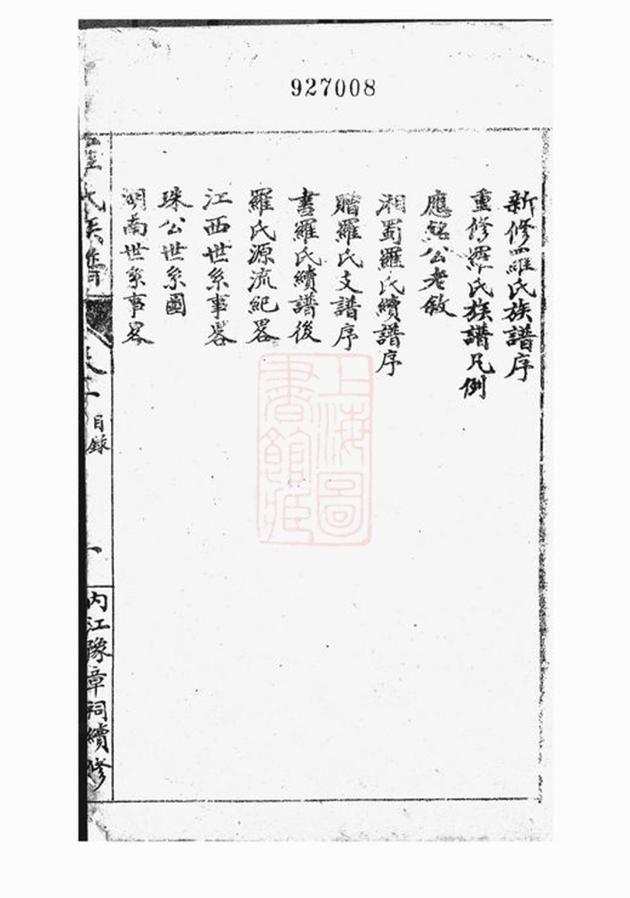 927008
新修羅氏族譜序
重修羅氏族譜凡例
應銘公老敘
湘蜀羅氏續譜序
贈羅氏支譜序
書羅氏續譜後
羅氏源流紀畧
江西世系事畧
珠公世系圖
湖南世系事畧
羅氏族譜
目錄
一
內江豫章祠續修
上海圖書館藏